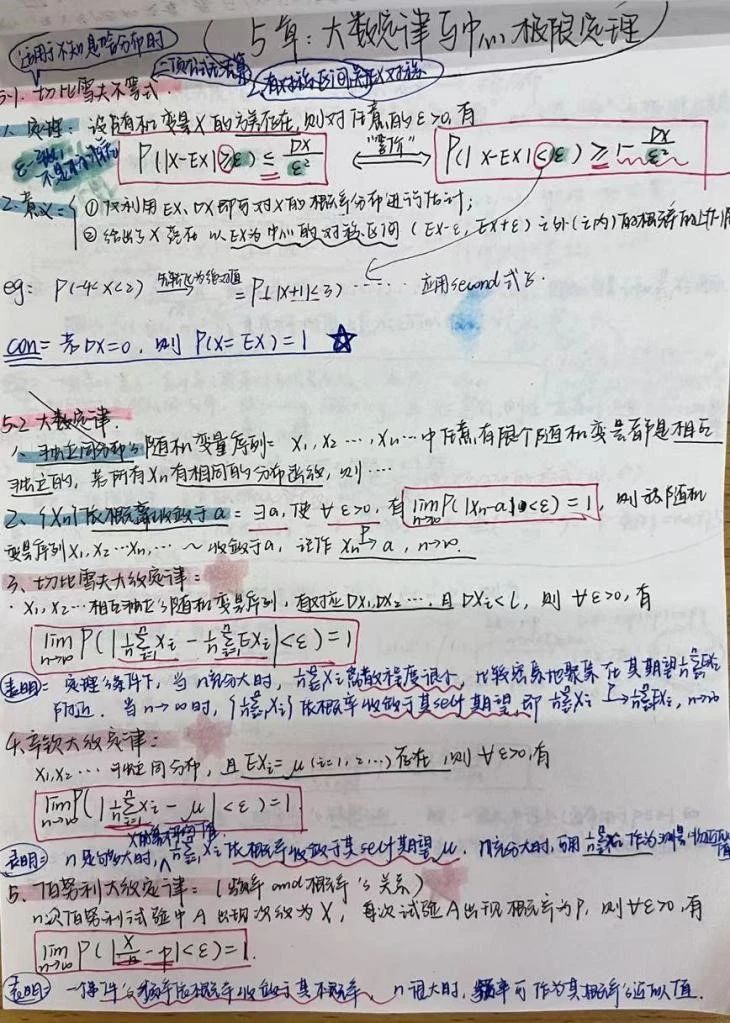 5章：大数定律与中心极限定理
适用于不知息啥分布时
5.1. 切比雪夫不等式
有对称区间关于EX对称
1. 定理：设随机变量X的方差存在,则对任意的ε>0,有
P(|X-EX|≥ε) ≤ DX/ε² "等价" P(|X-EX|<ε) ≥ 1-DX/ε²
2.意义= ①仅利用EX、DX即可对X的概率分布进行估计;
②给出了X落在以EX为中心的对称区间(EX-ε,EX+ε)之外(之内)的概率的上(下)
eg: P(-4<X<2) = P(|X+1|<3) …… 应用second式子.
con= 若DX=0, 则 P(X=EX)=1 ☆
5.2 大数定律.
1. 独立同分布的随机变量序列= X₁, X₂ …, Xn…中任意有限个随机变量都是相互
独立的, 若所有Xn有相同的分布函数, 则……
2. {Xn}依概率收敛于a = ∃a, 使∀ε>0, 有 lim n→∞ P(|Xn-a|<ε)=1, 则该随机
变量序列X₁,X₂…Xn,… ~ 收敛于a, 记作 Xn →P a, n→∞.
3、切比雪夫大数定律:
· X₁, X₂…相互独立的随机变量序列, 有对应DX₁,DX₂…, 且DXi<L, 则 ∀ε>0, 有
lim n→∞ P(|1/n Σ i=1 n Xi - 1/n Σ i=1 n EXi|<ε)=1
表明= 定理条件下, 当n充分大时, 1/n Σ i=1 n Xi离散程度很小, 比较密集地聚集在其期望1/n Σ i=1 n EXi
附近. 当n→∞时, {1/n Σ i=1 n Xi}依概率收敛于其self期望, 即 1/n Σ i=1 n Xi →P 1/n Σ i=1 n EXi, n→∞
4.辛钦大数定律:
X₁, X₂ … 独立同分布, 且EXi=μ (i=1, 2, …)存在, 则∀ε>0, 有
lim n→∞ P(|1/n Σ i=1 n Xi - μ|<ε)=1.
X的算术平均值
表明= n足够大时, 1/n Σ i=1 n Xi依概率收敛于其self期望μ. n充分大时, 可用1/n Σ i=1 n Xi作为测量物理
5. 伯努利大数定律: (频率and概率's关系)
n次伯努利试验中A出现次数为X, 每次试验A出现概率为P, 则∀ε>0, 有
lim n→∞ P(|X/n - p|<ε)=1.
表明= 一事件's频率依概率收敛于其概率, n很大时, 频率可作为其概率's近似值.